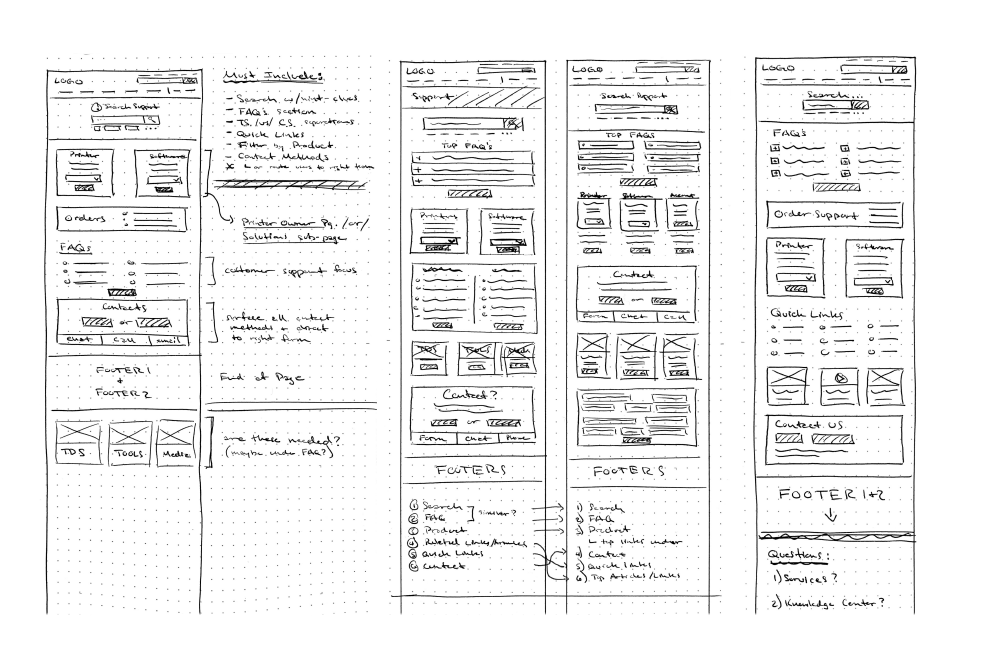 LOGO
Search Support
Printer
Software
Orders
FAQs
Contacts
or
Chat
Call
email
FOOTER 1
+
FOOTER 2
TDS
TOOLS
Media
Must Include:
- Search w/hint-clues
- FAQ's section
- Quick Links
- Filter by Product
- Contact Methods
Printer Owner Pg. /or/
Solutions sub-page
customer support focus
surface all contact
methods + direct
to right form
End of Page
are these needed?
(maybe under FAQ?)
LOGO
Support
TOP FAQ's
Printers
Software
TDS
TOOLS
Media
Contact?
or
Form
Chat
Phone
FOOTERS
① Search
② FAQ
similar?
③ Product
④ Related Links/Articles
⑤ Quick Links
⑥ Contact
LOGO
Search Support
TOP FAQS
Printer
Software
Contact
or
Form
Chat
Call
FOOTERS
1) Search
2) FAQ
3) Product
top links under
4) Contact
5) Quick links
6) Top Articles/Links
LOGO
Search...
FAQ's
Order Support
Printer
Software
Quick Links
Contact US
FOOTER 1+2
Questions:
1) Services?
2) Knowledge Center?